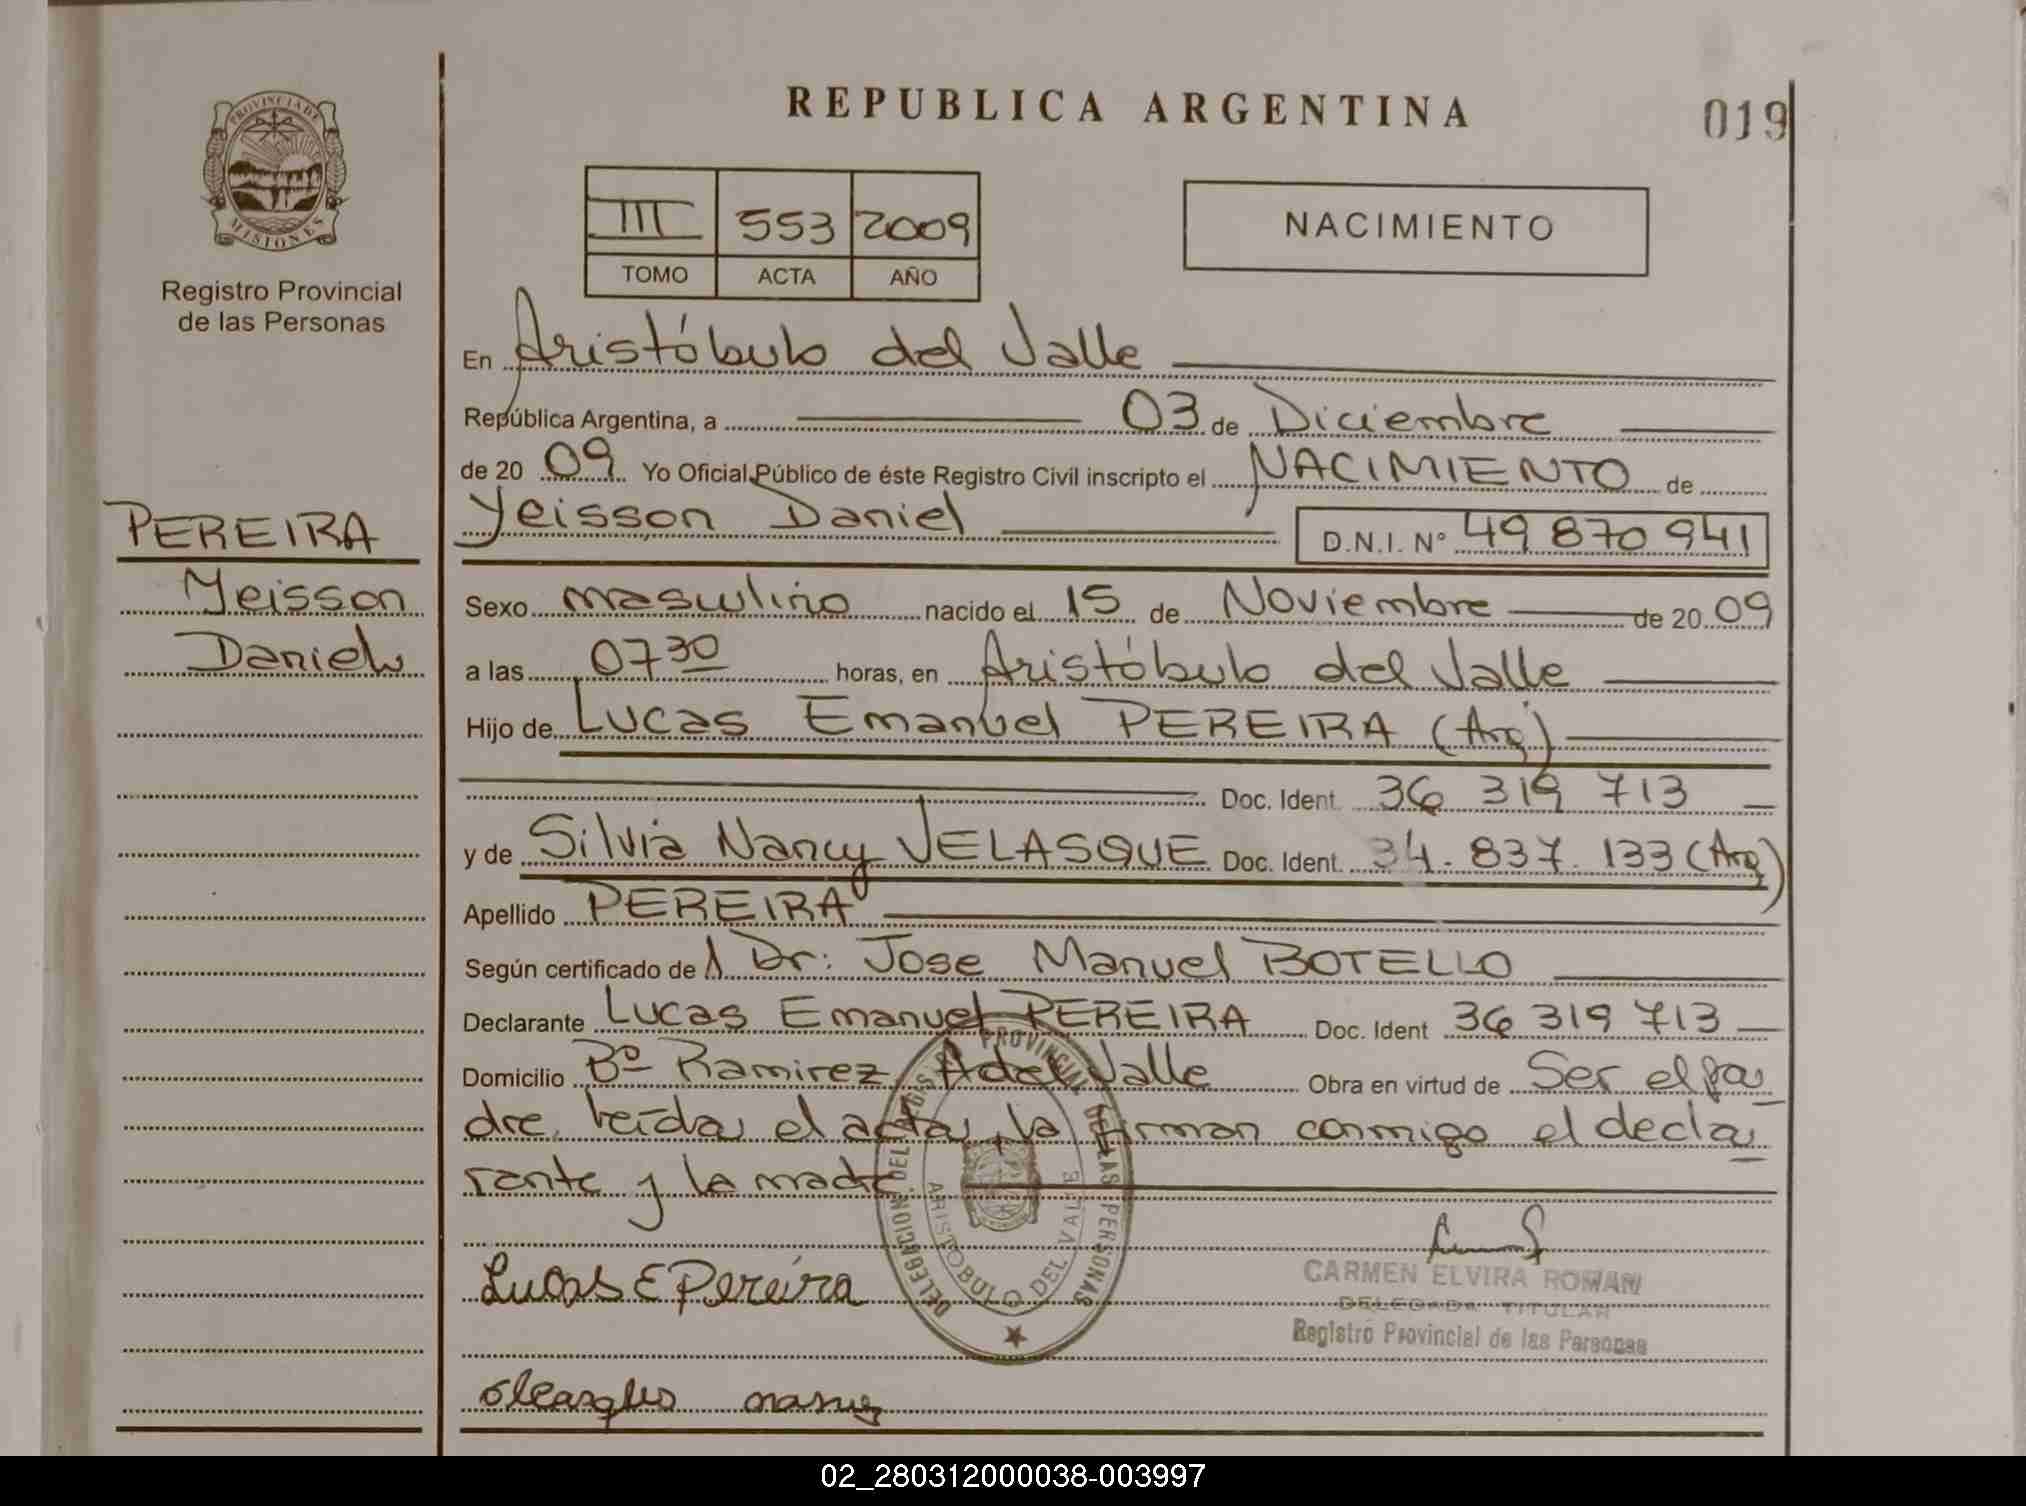 PROVINCIA DE
MISIONES
Registro Provincial
de las Personas
PEREIRA
Yeisson
Daniel
REPUBLICA ARGENTINA
019
III 553 2009
TOMO ACTA AÑO
NACIMIENTO
En Aristóbulo del Valle
República Argentina, a 03 de Diciembre
de 20 09 Yo Oficial Público de éste Registro Civil inscripto el NACIMIENTO de
Yeisson Daniel D.N.I. Nº 49 870 941
Sexo masculino nacido el 15 de Noviembre de 20 09
a las 07 30 horas, en Aristóbulo del Valle
Hijo de Lucas Emanuel PEREIRA (Arg)
Doc. Ident. 36 319 713
y de Silvia Nancy VELASQUE Doc. Ident. 34.837.133 (Arg)
Apellido PEREIRA
Según certificado de Dr: Jose Manuel BOTELLO
Declarante Lucas Emanuel PEREIRA Doc. Ident 36 319 713
Domicilio Bº Ramirez A del Valle Obra en virtud de Ser el pa
dre, leída el acta, la firman conmigo el decla
rante y la madre
DELEGACION DEL REGISTRO PROVINCIAL DE LAS PERSONAS
ARISTOBULO DEL VALLE
Lucas E Pereira
CARMEN ELVIRA ROMAN
DELEGADA TITULAR
Registro Provincial de las Personas
02_280312000038-003997